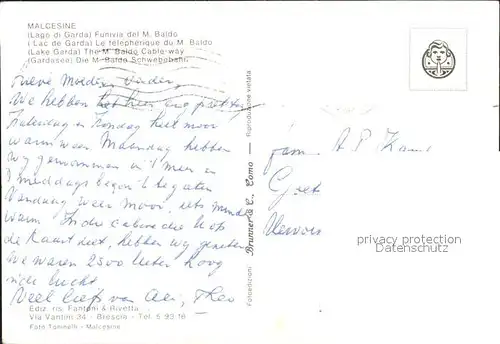 MALCESINE
(Lago di Garda) Funivia del M. Baldo
( Lac de Garda) Le téléphérique du M. Baldo
(Lake Garda) The M. Baldo Cable-way
(Gardasee) Die M. Baldo Schwebebahn
Lieve Moeder, Vader,
We hebben het hier erg prettig
Zaterdag en Zondag heel mooi
warm weer Maandag hebben
wij gezwommen in 't meer en
's middags begon 't te gieten
Vandaag weer mooi, iets minder
warm. In die cabine die U op
de kaart ziet, hebben wij gezeten
We waren 2500 meter hoog
in de lucht
Veel liefs van Theo
Ediz. ris. Fantoni & Rivetta
Via Vantini 34 - Brescia - Tel. 5 93 16
Foto Toninelli - Malcesine
Fotoedizioni Brunner & C., Como - Riproduzione vietata
Fam. A P
privacy protection
Datenschutz